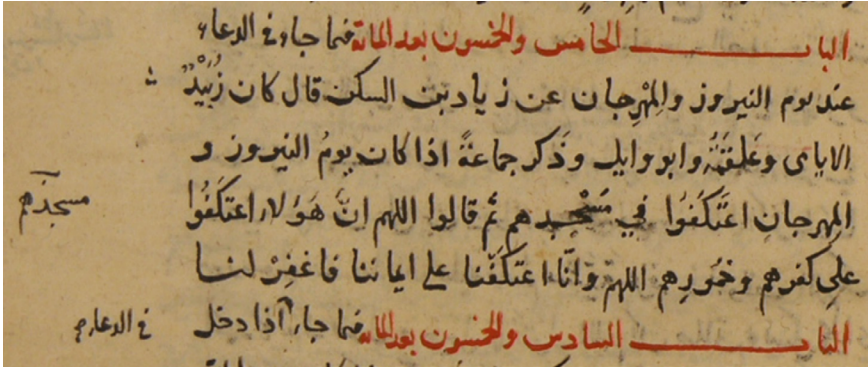 الباب الخامس والخمسون بعد المائة فيما جاء في الدعاء
عند يوم النيروز والمِهْرجان عن زياد بن السكن قال كان زُبَيْدٌ
الايامى وعَلقَمَةُ وابو وايل وذَكر جماعَةً اذا كان يومُ النيروز و
المهرجانِ اعتَكَفُوا في مَسْجِدِهم ثم قالوا اللهم انَّ هَؤلاءِ اعتكَفُوا
مسجدهم
على كفرهم وخمُورِهم اللهم وانّا اعتكَفْنا على ايماننا فاغفِرْ لنا
الباب السادس والخمسون بعد المائة فيما جاء اذا دخل
في الدعاء